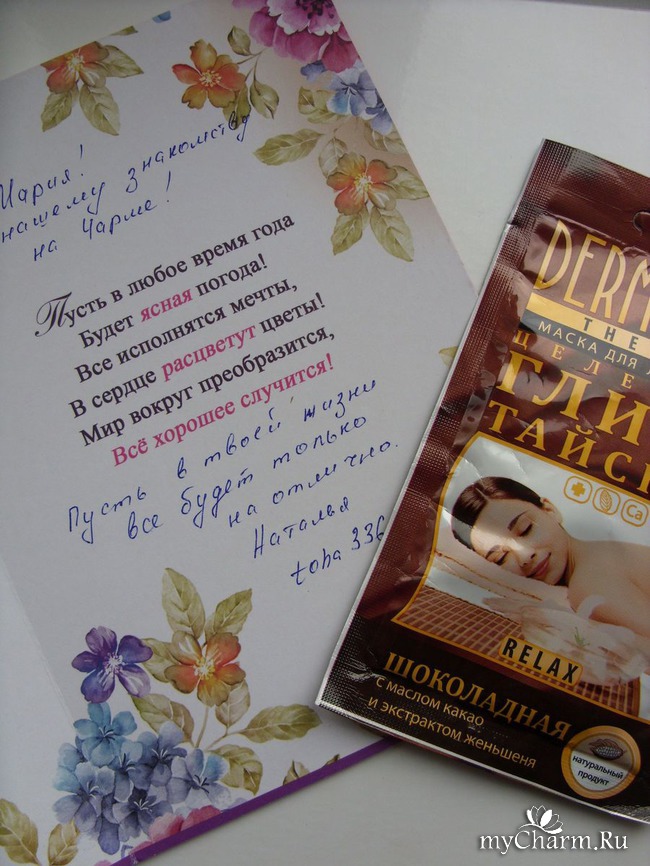 Мария!
нашему знакомству
на Чарме!
Пусть в любое время года
Будет ясная погода!
Все исполнятся мечты,
В сердце расцветут цветы!
Мир вокруг преобразится,
Всё хорошее случится!
Пусть в твоей жизни
все будет только
на отлично.
Наталья
toha 336
DERM
THE
МАСКА ДЛЯ Л
ЦЕЛЕ
ГЛИ
ТАЙСК
Ca
RELAX
ШОКОЛАДНАЯ
С МАСЛОМ КАКАО
И ЭКСТРАКТОМ ЖЕНЬШЕНЯ
натуральный
продукт
myCharm.Ru